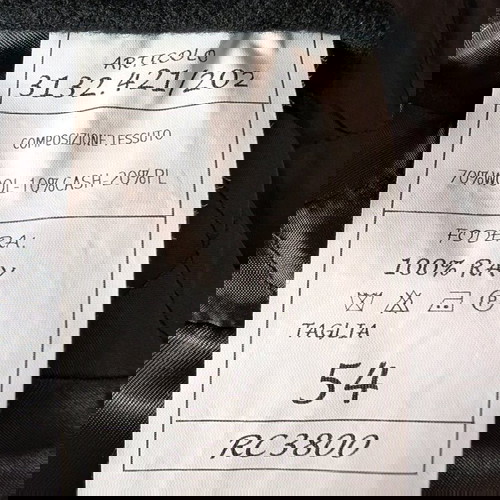 ARTICOLO
3132.421/202
COMPOSIZIONE TESSUTO
70%WOOL-10%CASH-20%PL
FODERA:
100% RAY
TAGLIA
54
RC3800